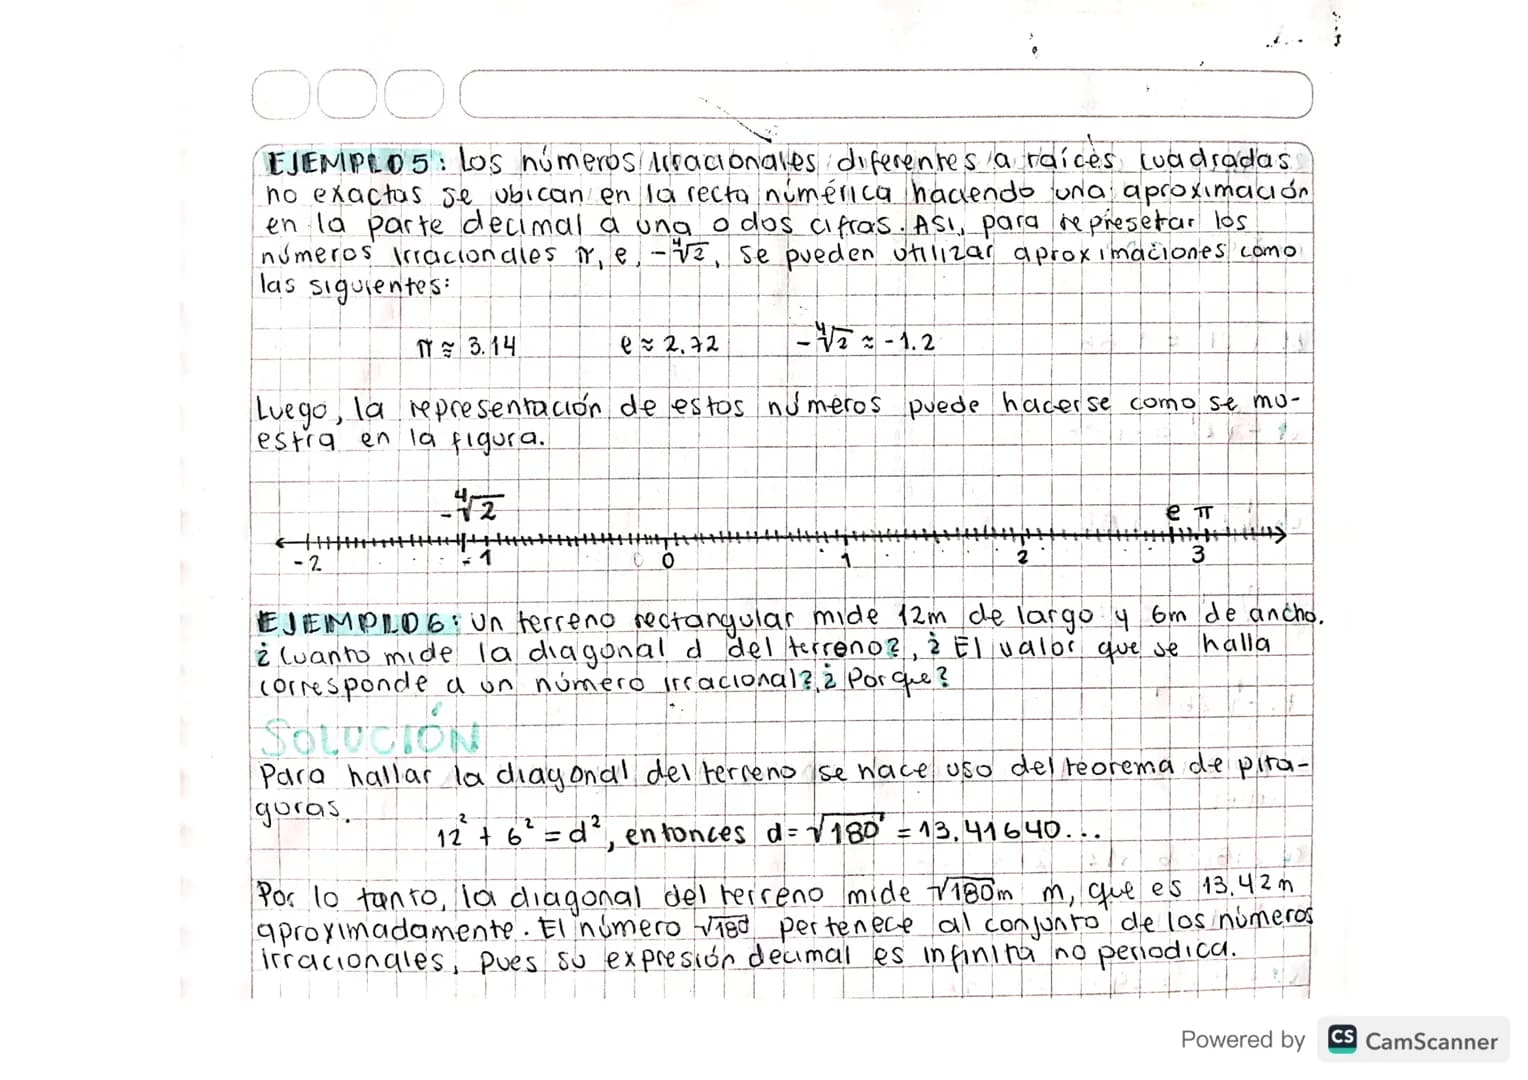 EJEMPLO 5: Los números irracionales diferentes a raíces cuadradas
no exactas se ubican en la recta númérica haciendo una aproximación
en la parte decimal a una o dos cifras. ASI, para represetar los
números irracionales π, e, -∜2, se pueden utilizar aproximaciones como
las siguientes:
π ≈ 3.14 e ≈ 2.72 -∜2 ≈ -1.2
Luego, la representación de estos números puede hacerse como se mo-
estra en la figura.
-∜2 e π
-2 -1 0 1 2 3
EJEMPLO 6: Un terreno rectangular mide 12m de largo y 6m de ancho.
¿Cuanto mide la diagonal d del terreno?, ¿El valor que se halla
corresponde a un número irracional?, ¿Por que?
SOLUCIÓN
Para hallar la diagonal del terreno se hace uso del teorema de pita-
goras.
12² + 6² = d², entonces d = √180 = 13.41640...
Por lo tanto, la diagonal del terreno mide √180m m, que es 13.42m
aproximadamente. El número √180 pertenece al conjunto de los números
irracionales, pues su expresión decimal es infinita no periodica.
Powered by CS CamScanner